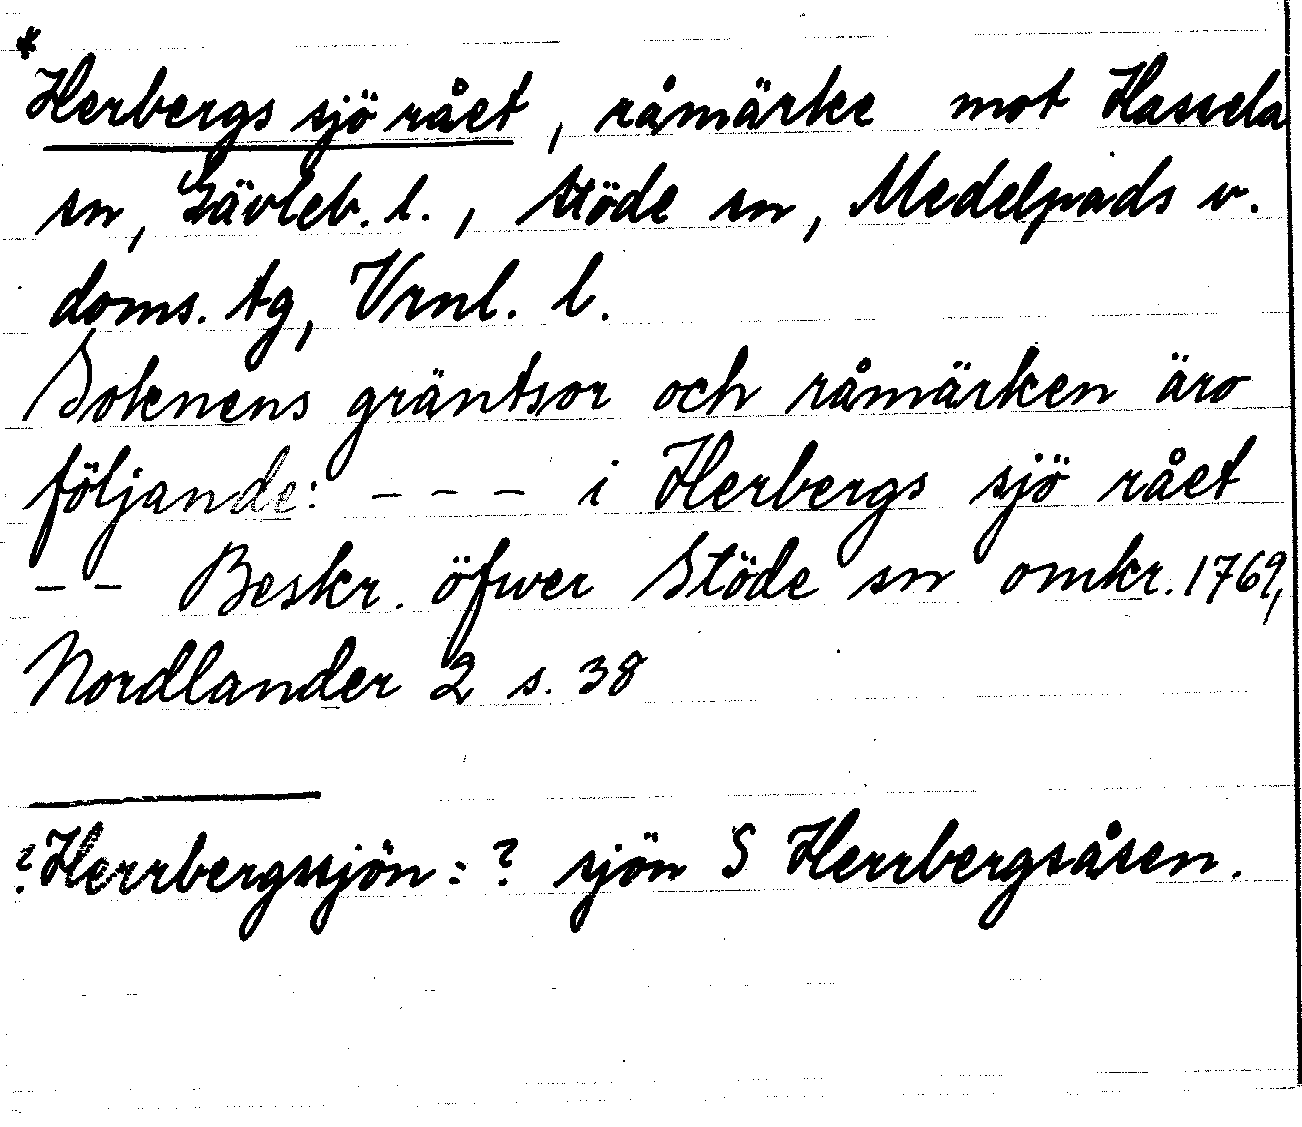 * Herbergs sjö rået, råmärke mot Hassela
sn, Gävleb. l., Stöde sn, Medelpads v.
doms. tg, Vrnl. l.
Soknens gräntsor och råmärken äro
följande: - - - i Herbergs sjö rået
- - Beskr. öfwer Stöde sn omkr. 1769,
Nordlander 2 s. 38
?Herrbergssjön: ? sjön S Herrbergsåsen.